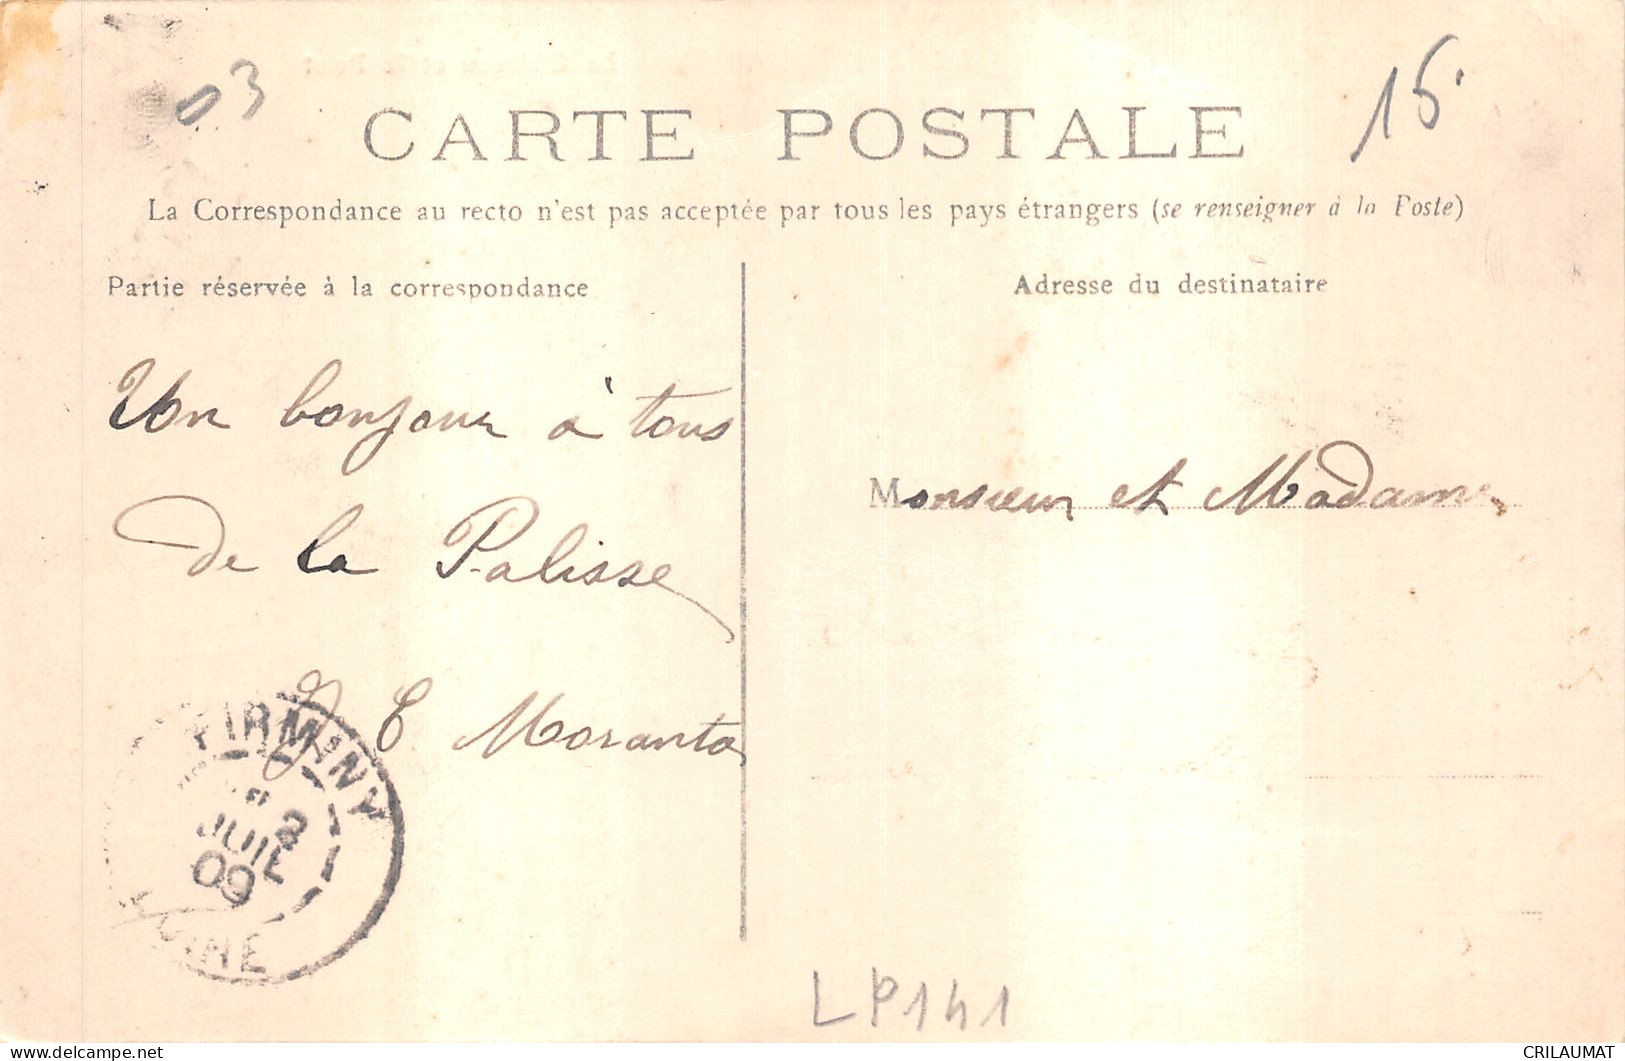 03
15.
CARTE POSTALE
La Correspondance au recto n'est pas acceptée par tous les pays étrangers (se renseigner à la Poste)
Partie réservée à la correspondance
Adresse du destinataire
Un bonjour à tous
de la Palisse
Monsieur et Madame
FIRMINY
2
JUIL
09
LOIRE
LP141
CRILAUMAT